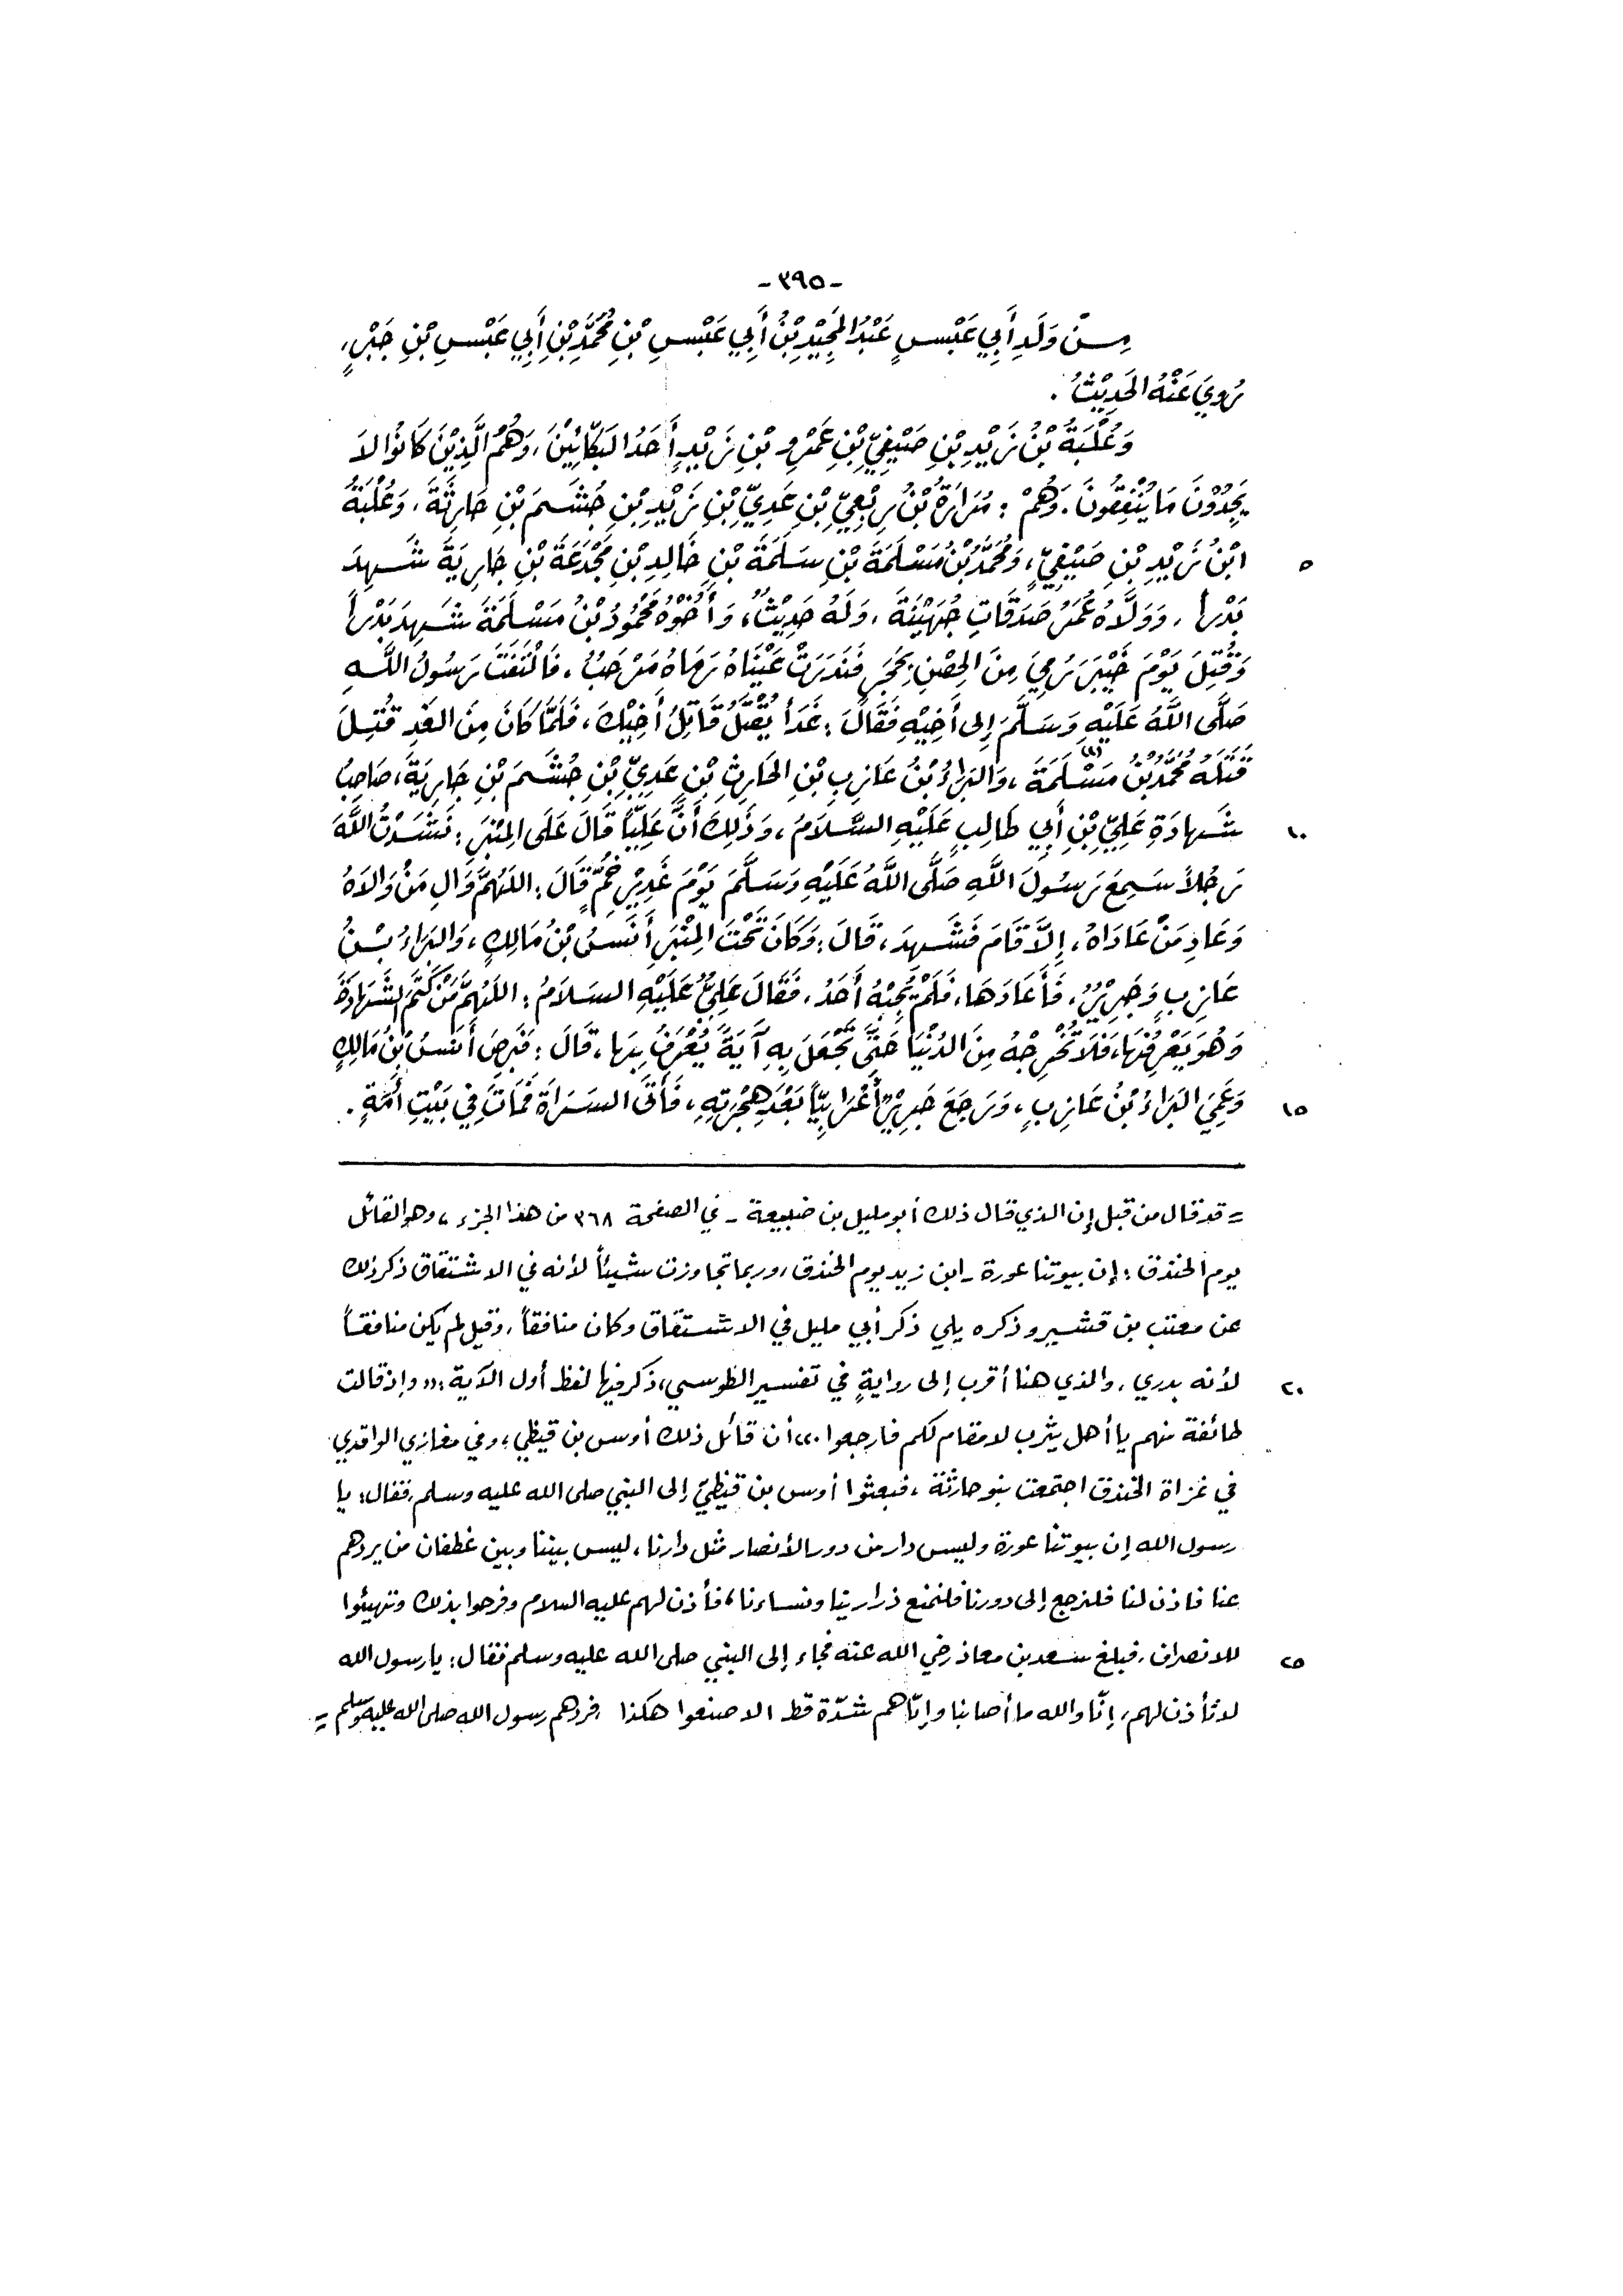 -٣٩٥-
مِنْ وَلَدِ أَبِي عَبْسٍ عَبْدُ المَجِيْدِ بْنُ أَبِي عَبْسِ بْنِ مُحَمَّدِ بْنِ أَبِي عَبْسِ بْنِ جَبْرٍ،
رُوِيَ عَنْهُ الحَدِيْثُ .
وَعُلْبَةُ بْنُ زَيْدِ بْنِ صَيْفِيِّ بْنِ عَمْرِو بْنِ زَيْدٍ أَحَدُ البَكَّائِيْنَ، وَهُمُ الَّذِيْنَ كَانُوا لاَ
يَجِدُوْنَ مَا يُنْفِقُونَ. وَهُمْ : مُرَارَةُ بْنُ رِبْعِيِّ بْنِ عَدِيِّ بْنِ زَيْدِ بْنِ جُشَمَ بْنِ حَارِثَةَ، وَعُلْبَةُ
٥ ابْنُ زَيْدِ بْنِ صَيْفِيٍّ، وَمُحَمَّدُ بْنُ مَسْلَمَةَ بْنِ سَلَمَةَ بْنِ خَالِدِ بْنِ مَجْدَعَةَ بْنِ جَارِيَةَ شَهِدَ
بَدْراً، وَوَلَّاهُ عُمَرُ صَدَقَاتِ جُهَيْنَةَ، وَلَهُ حَدِيْثٌ، وَأَخُوْهُ مَحْمُوْدُ بْنُ مَسْلَمَةَ شَهِدَ بَدْراً
وَقُتِلَ يَوْمَ خَيْبَرَ رُمِيَ مِنَ الحِصْنِ بِحَجَرٍ فَنَدَرَتْ عَيْنَاهُ رَمَاهُ مَرْحَبٌ، فَالْتَفَتَ رَسُولُ اللَّهِ
صَلَّى اللَّهُ عَلَيْهِ وَسَلَّمَ إِلى أَخِيْهِ فَقَالَ: غَداً يُقْتَلُ قَاتِلُ أَخِيْكَ، فَلَمَّا كَانَ مِنَ الغَدِ قُتِلَ
قَتَلَهُ مُحَمَّدُ بْنُ مَسْلَمَةَ(١)، وَالبَرَاءُ بْنُ عَازِبِ بْنِ الحَارِثِ بْنِ عَدِيِّ بْنِ جُشَمَ بْنِ جَارِيَةَ، صَاحِبُ
١٠ شَهَادَةِ عَلِيِّ بْنِ أَبِي طَالِبٍ عَلَيْهِ السَّلاَمُ، وَذَلِكَ أَنَّ عَلِيّاً قَالَ عَلَى المِنْبَرِ: نَشَدْتُ اللَّهَ
رَجُلاً سَمِعَ رَسُولَ اللَّهِ صَلَّى اللَّهُ عَلَيْهِ وَسَلَّمَ يَوْمَ غَدِيْرِ خُمٍّ قَالَ: اللَهُمَّ وَالِ مَنْ وَالاَهُ
وَعَادِ مَنْ عَادَاهُ، إِلاَّ قَامَ فَشَهِدَ، قَالَ: وَكَانَ تَحْتَ المِنْبَرِ أَنَسُ بْنُ مَالِكٍ، وَالبَرَاءُ بْنُ
عَازِبٍ وَجَرِيْرٌ، فَأَعَادَهَا، فَلَمْ يُجِبْهُ أَحَدٌ، فَقَالَ عَلِيٌّ عَلَيْهِ السَلاَمُ: اللَهُمَّ مَنْ كَتَمَ الشَهَادَةَ
وَهُوَ يَعْرِفُهَا، فَلاَ تُخْرِجْهُ مِنَ الدُنْيَا حَتَّى تَجْعَلَ بِهِ آيَةً يُعْرَفُ بِهَا، قَالَ: فَبَرِصَ أَنَسُ بْنُ مَالِكٍ
١٥ وَعَمِيَ البَرَاءُ بْنُ عَازِبٍ، وَرَجَعَ جَرِيْرٌ أَعْرَابِيّاً بَعْدَ هِجْرَتِهِ، فَأَتَى السَرَاةَ فَمَاتَ فِي بَيْتِ أُمِّهِ.
= قد قال من قبل إن الذي قال ذلك أبو مليل بن ضبيعة - في الصفحة ٣٦٨ من هذا الجزء، وهو القائل
يوم الخندق: إن بيوتنا عورة - ابن زيد يوم الخندق، وربما تجاوزت شيئاً لأنه في الاشتقاق ذكر ذلك
عن معتب بن قشير وذكره يلي ذكر أبي مليل في الاشتقاق وكان منافقاً، وقيل لم يكن منافقاً
٢٠ لأنه بدري، والذي هنا أقرب إلى روايةٍ في تفسير الطوسي، ذكر فيها لفظ أول الآية: ‹‹ وإذ قالت
طائفة منهم يا أهل يثرب لا مقام لكم فارجعوا ›› أن قائل ذلك أوس بن قيظي، وفي مغازي الواقدي
في غزاة الخندق اجتمعت بنو حارثة، فبعثوا أوس بن قيظيّ إلى النبي صلى الله عليه وسلم، فقال: يا
رسول الله إن بيوتنا عورة وليس دار من دور الأنصار مثل دارنا، ليس بيننا وبين غطفان من يردهم
عنا فاذن لنا فلنرجع إلى دورنا فلنمنع ذرارينا ونساءنا، فأذن لهم عليه السلام وفرحوا بذلك وتهيئوا
٢٥ للانصراف، فبلغ سعد بن معاذ رضي الله عنه فجاء إلى النبي صلى الله عليه وسلم فقال: يا رسول الله
لا تأذن لهم، إنّا والله ما أصابنا وإيّاهم شدّة قط الا صنعوا هكذا، فردهم رسول الله صلى الله عليه وسلم =